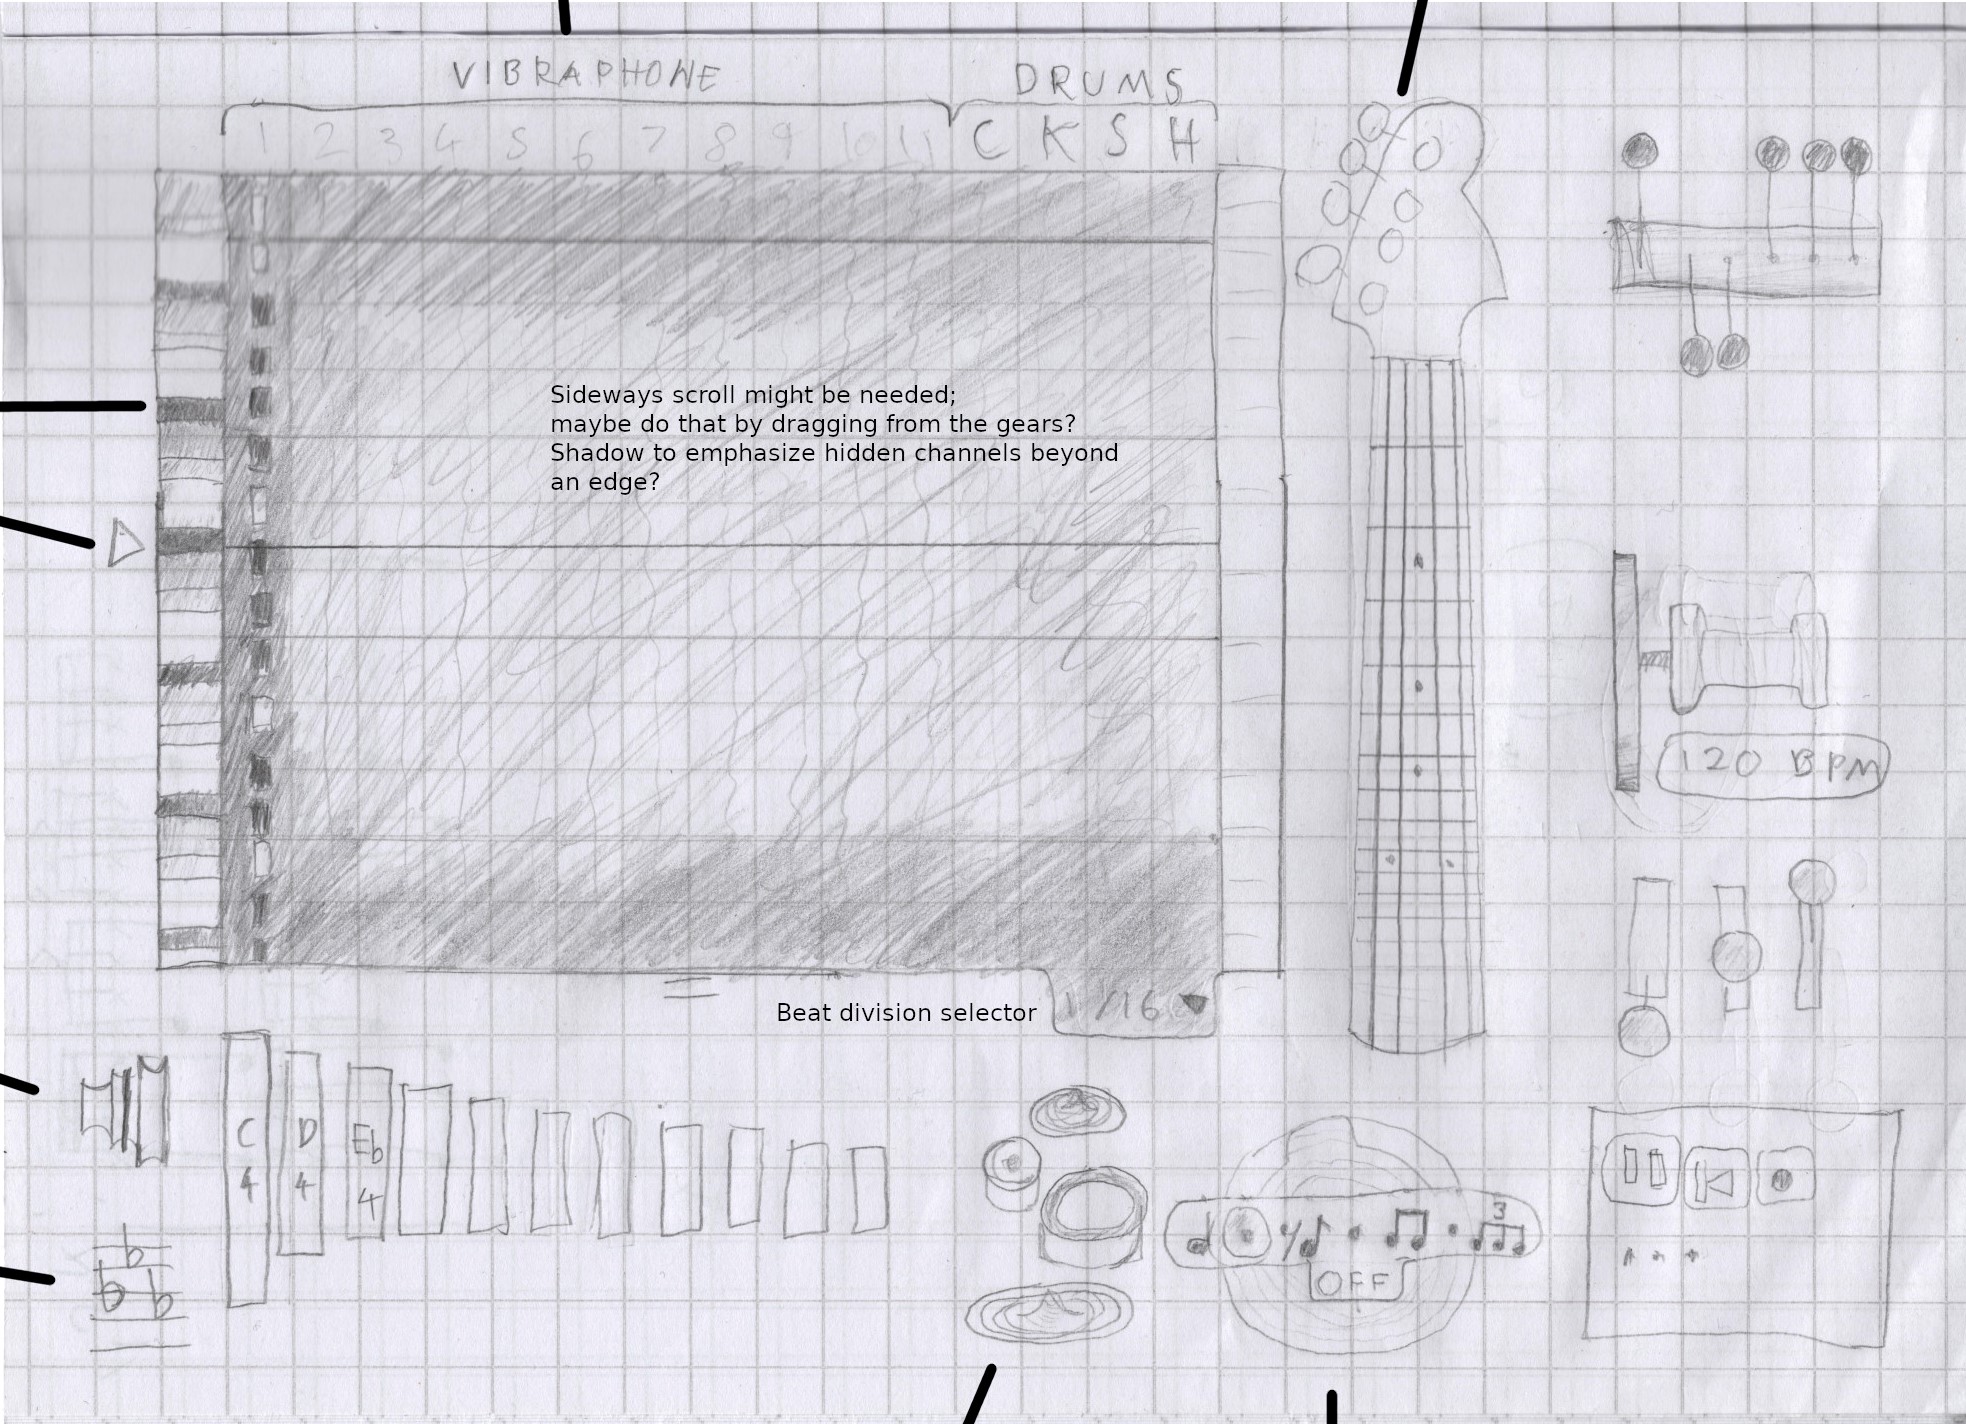 VIBRAPHONE
DRUMS
1 2 3 4 5 6 7 8 9 10 11 C K S H
Sideways scroll might be needed;
maybe do that by dragging from the gears?
Shadow to emphasize hidden channels beyond
an edge?
120 BPM
Beat division selector
1/16
C
4
D
4
Eb
4
3
OFF